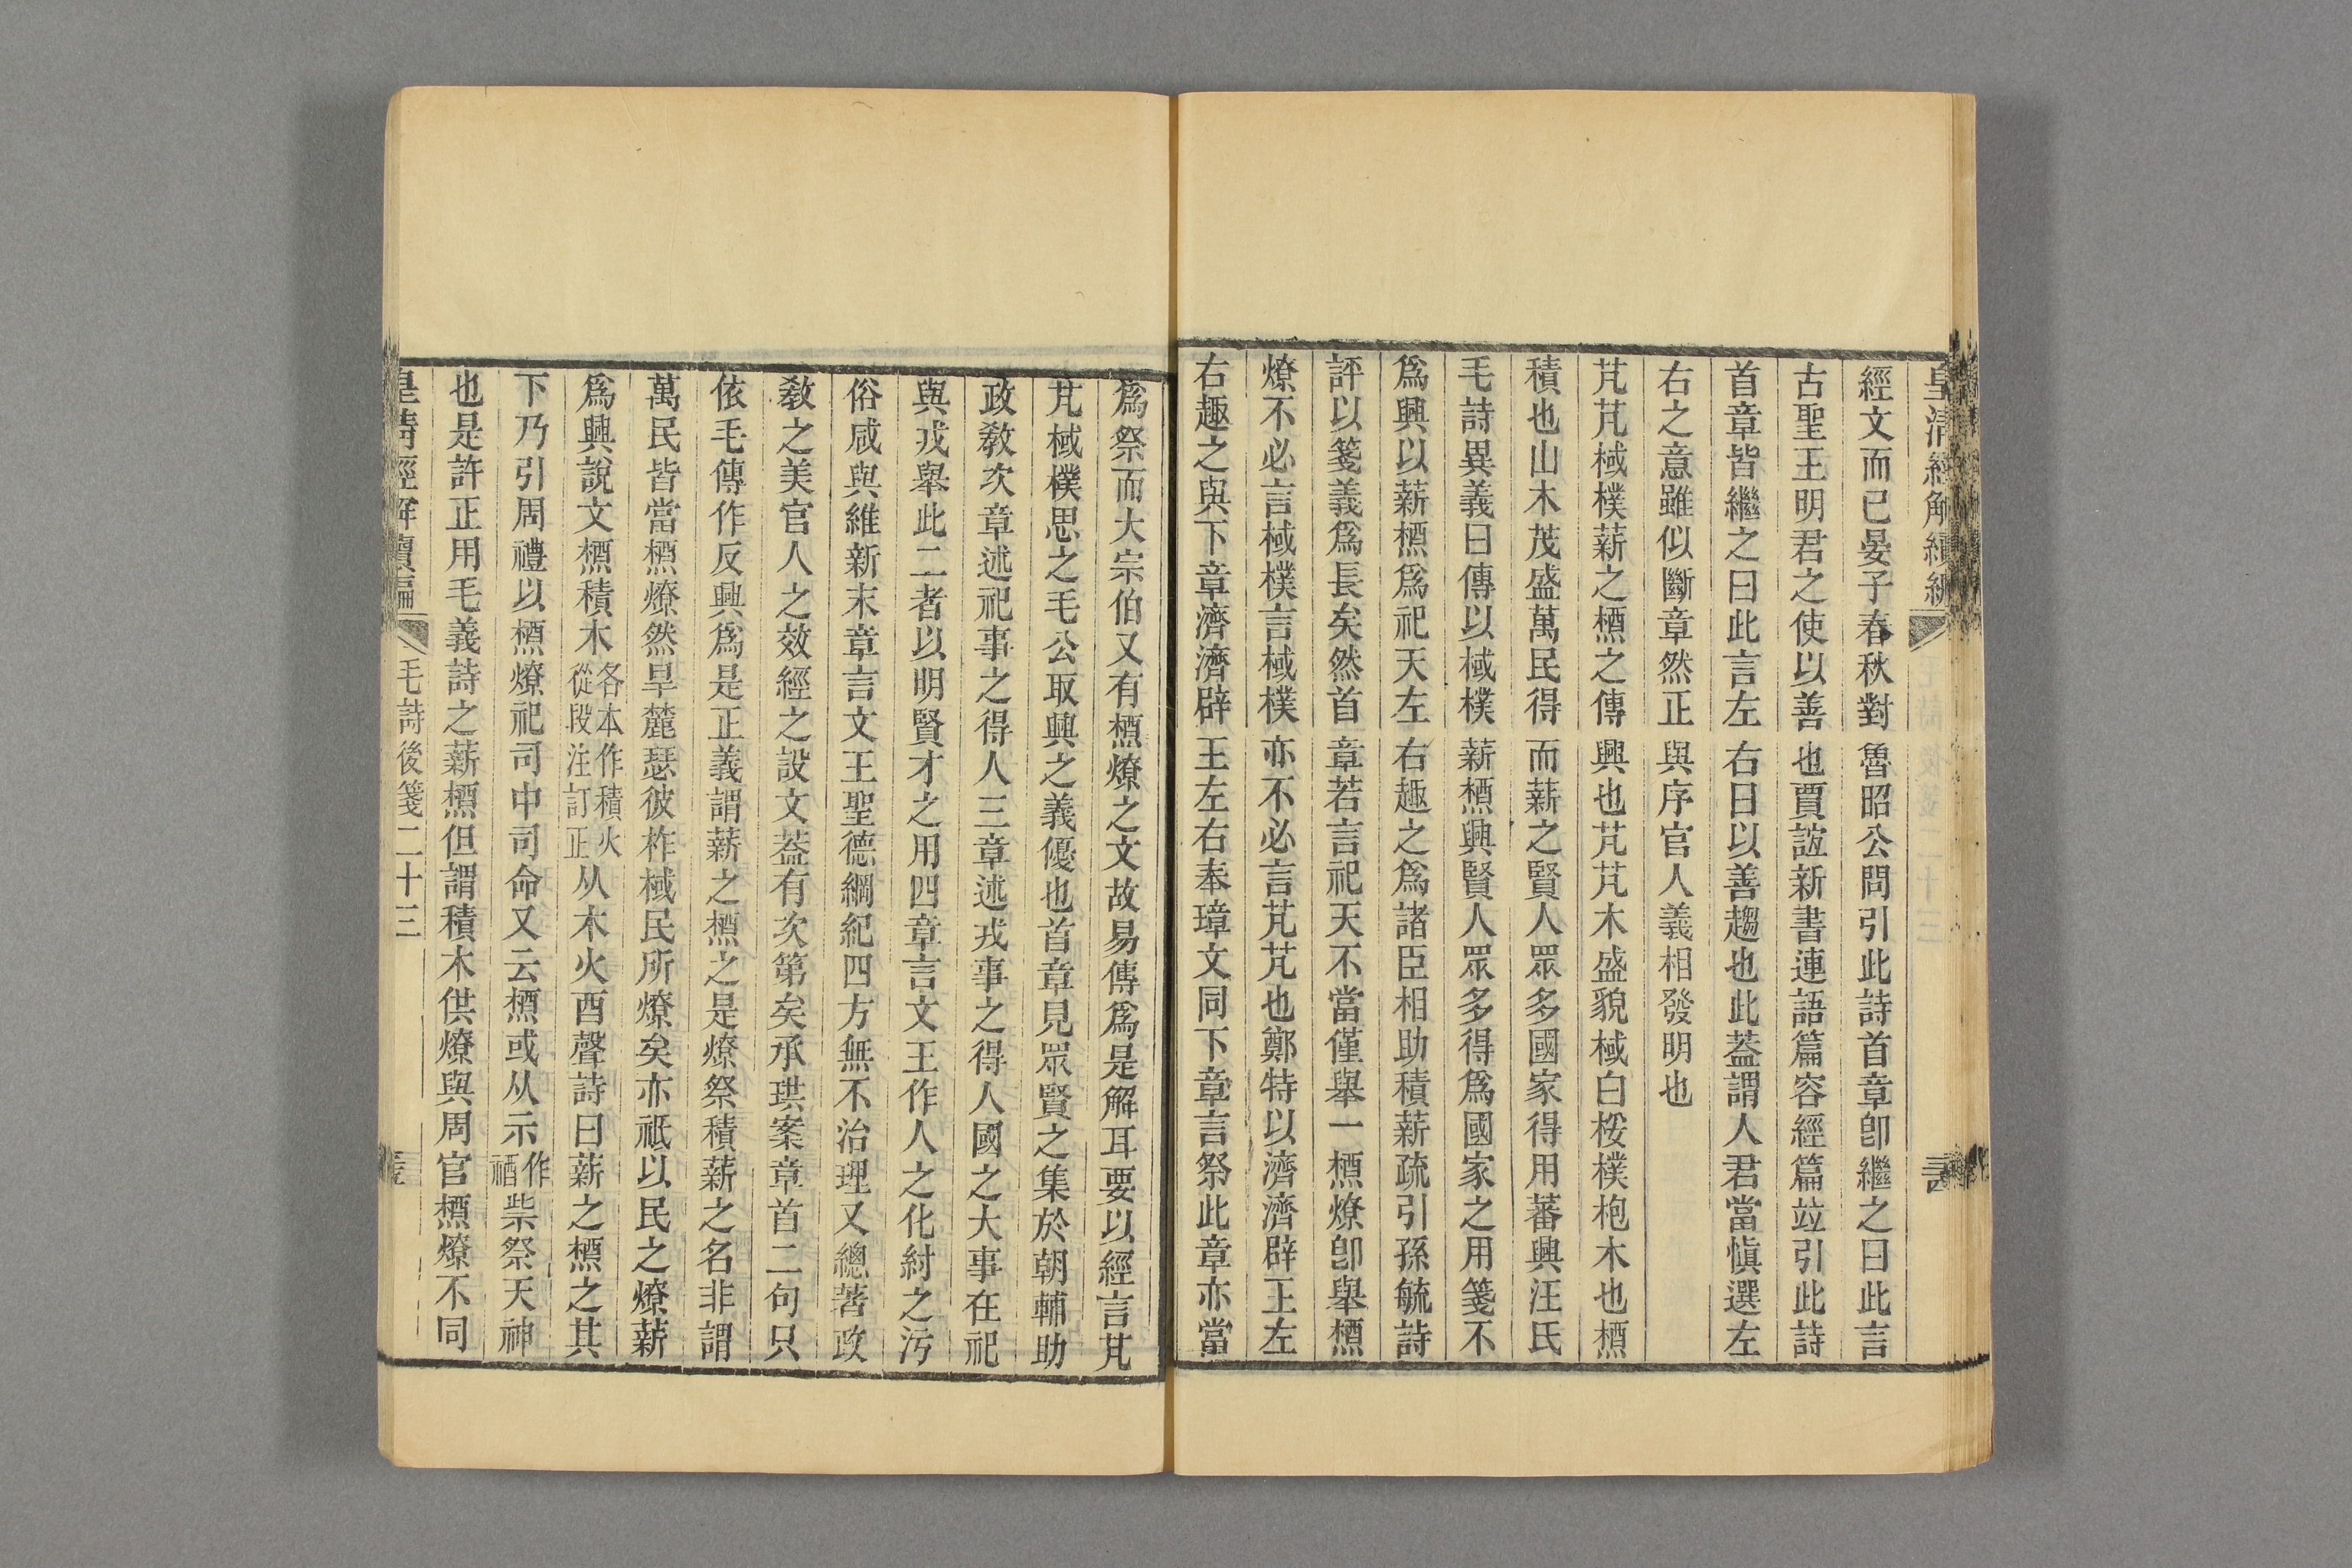 皇清經解續編
經文而已晏子春秋對魯昭公問引此詩首章卽繼之曰此言
古聖王明君之使以善也賈誼新書連語篇容經篇竝引此詩
首章皆繼之曰此言左右日以善趨也此葢謂人君當愼選左
右之意雖似斷章然正與序官人義相發明也
芃芃棫樸薪之槱之傳興也芃芃木盛貌棫白桵樸枹木也槱
積也山木茂盛萬民得而薪之賢人眾多國家得用蕃興汪氏
毛詩異義曰傳以棫樸薪槱興賢人眾多得爲國家之用箋不
爲興以薪槱爲祀天左右趣之爲諸臣相助積薪疏引孫毓詩
評以箋義爲長矣然首章若言祀天不當僅舉一槱燎卽舉槱
燎不必言棫樸言棫樸亦不必言芃芃也鄭特以濟濟辟王左
右趣之與下章濟濟辟王左右奉璋文同下章言祭此章亦當
爲祭而大宗伯又有槱燎之文故易傳爲是解耳要以經言芃
芃棫樸思之毛公取興之義優也首章見眾賢之集於朝輔助
政敎次章述祀事之得人三章述戎事之得人國之大事在祀
與戎舉此二者以明賢才之用四章言文王作人之化紂之污
俗咸與維新末章言文王聖德綱紀四方無不治理又總著政
敎之美官人之效經之設文葢有次第矣承珙案章首二句只
依毛傳作反興爲是正義謂薪之槱之是燎祭積薪之名非謂
萬民皆當槱燎然旱麓瑟彼柞棫民所燎矣亦祗以民之燎薪
爲興說文槱積木各本作積火從段注訂正从木火酉聲詩曰薪之槱之其
下乃引周禮以槱燎祀司中司命又云槱或从示作䄛柴祭天神
也是許正用毛義詩之薪槱但謂積木供燎與周官槱燎不同
皇清經解續編 毛詩後箋二十三